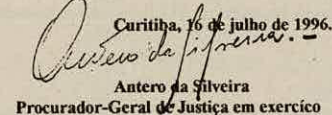 Curitiba, 16 de julho de 1996.
Antero da Silveira.
Antero da Silveira
Procurador-Geral de Justiça em exercíco